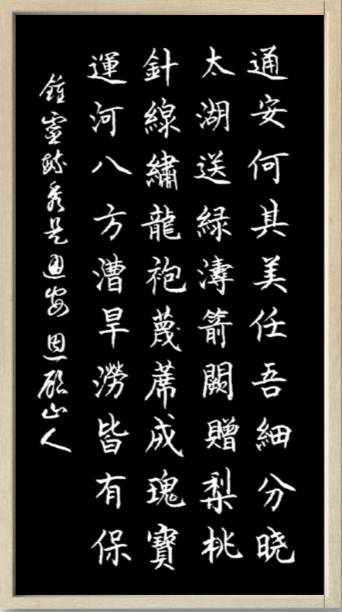 通安何其美任吾細分晓
太湖送緑濤箭闕贈梨桃
針線繡龍袍蔑蓆成瑰寶
運河八方漕旱澇皆有保
鍾靈毓秀是通安 恩顧山人